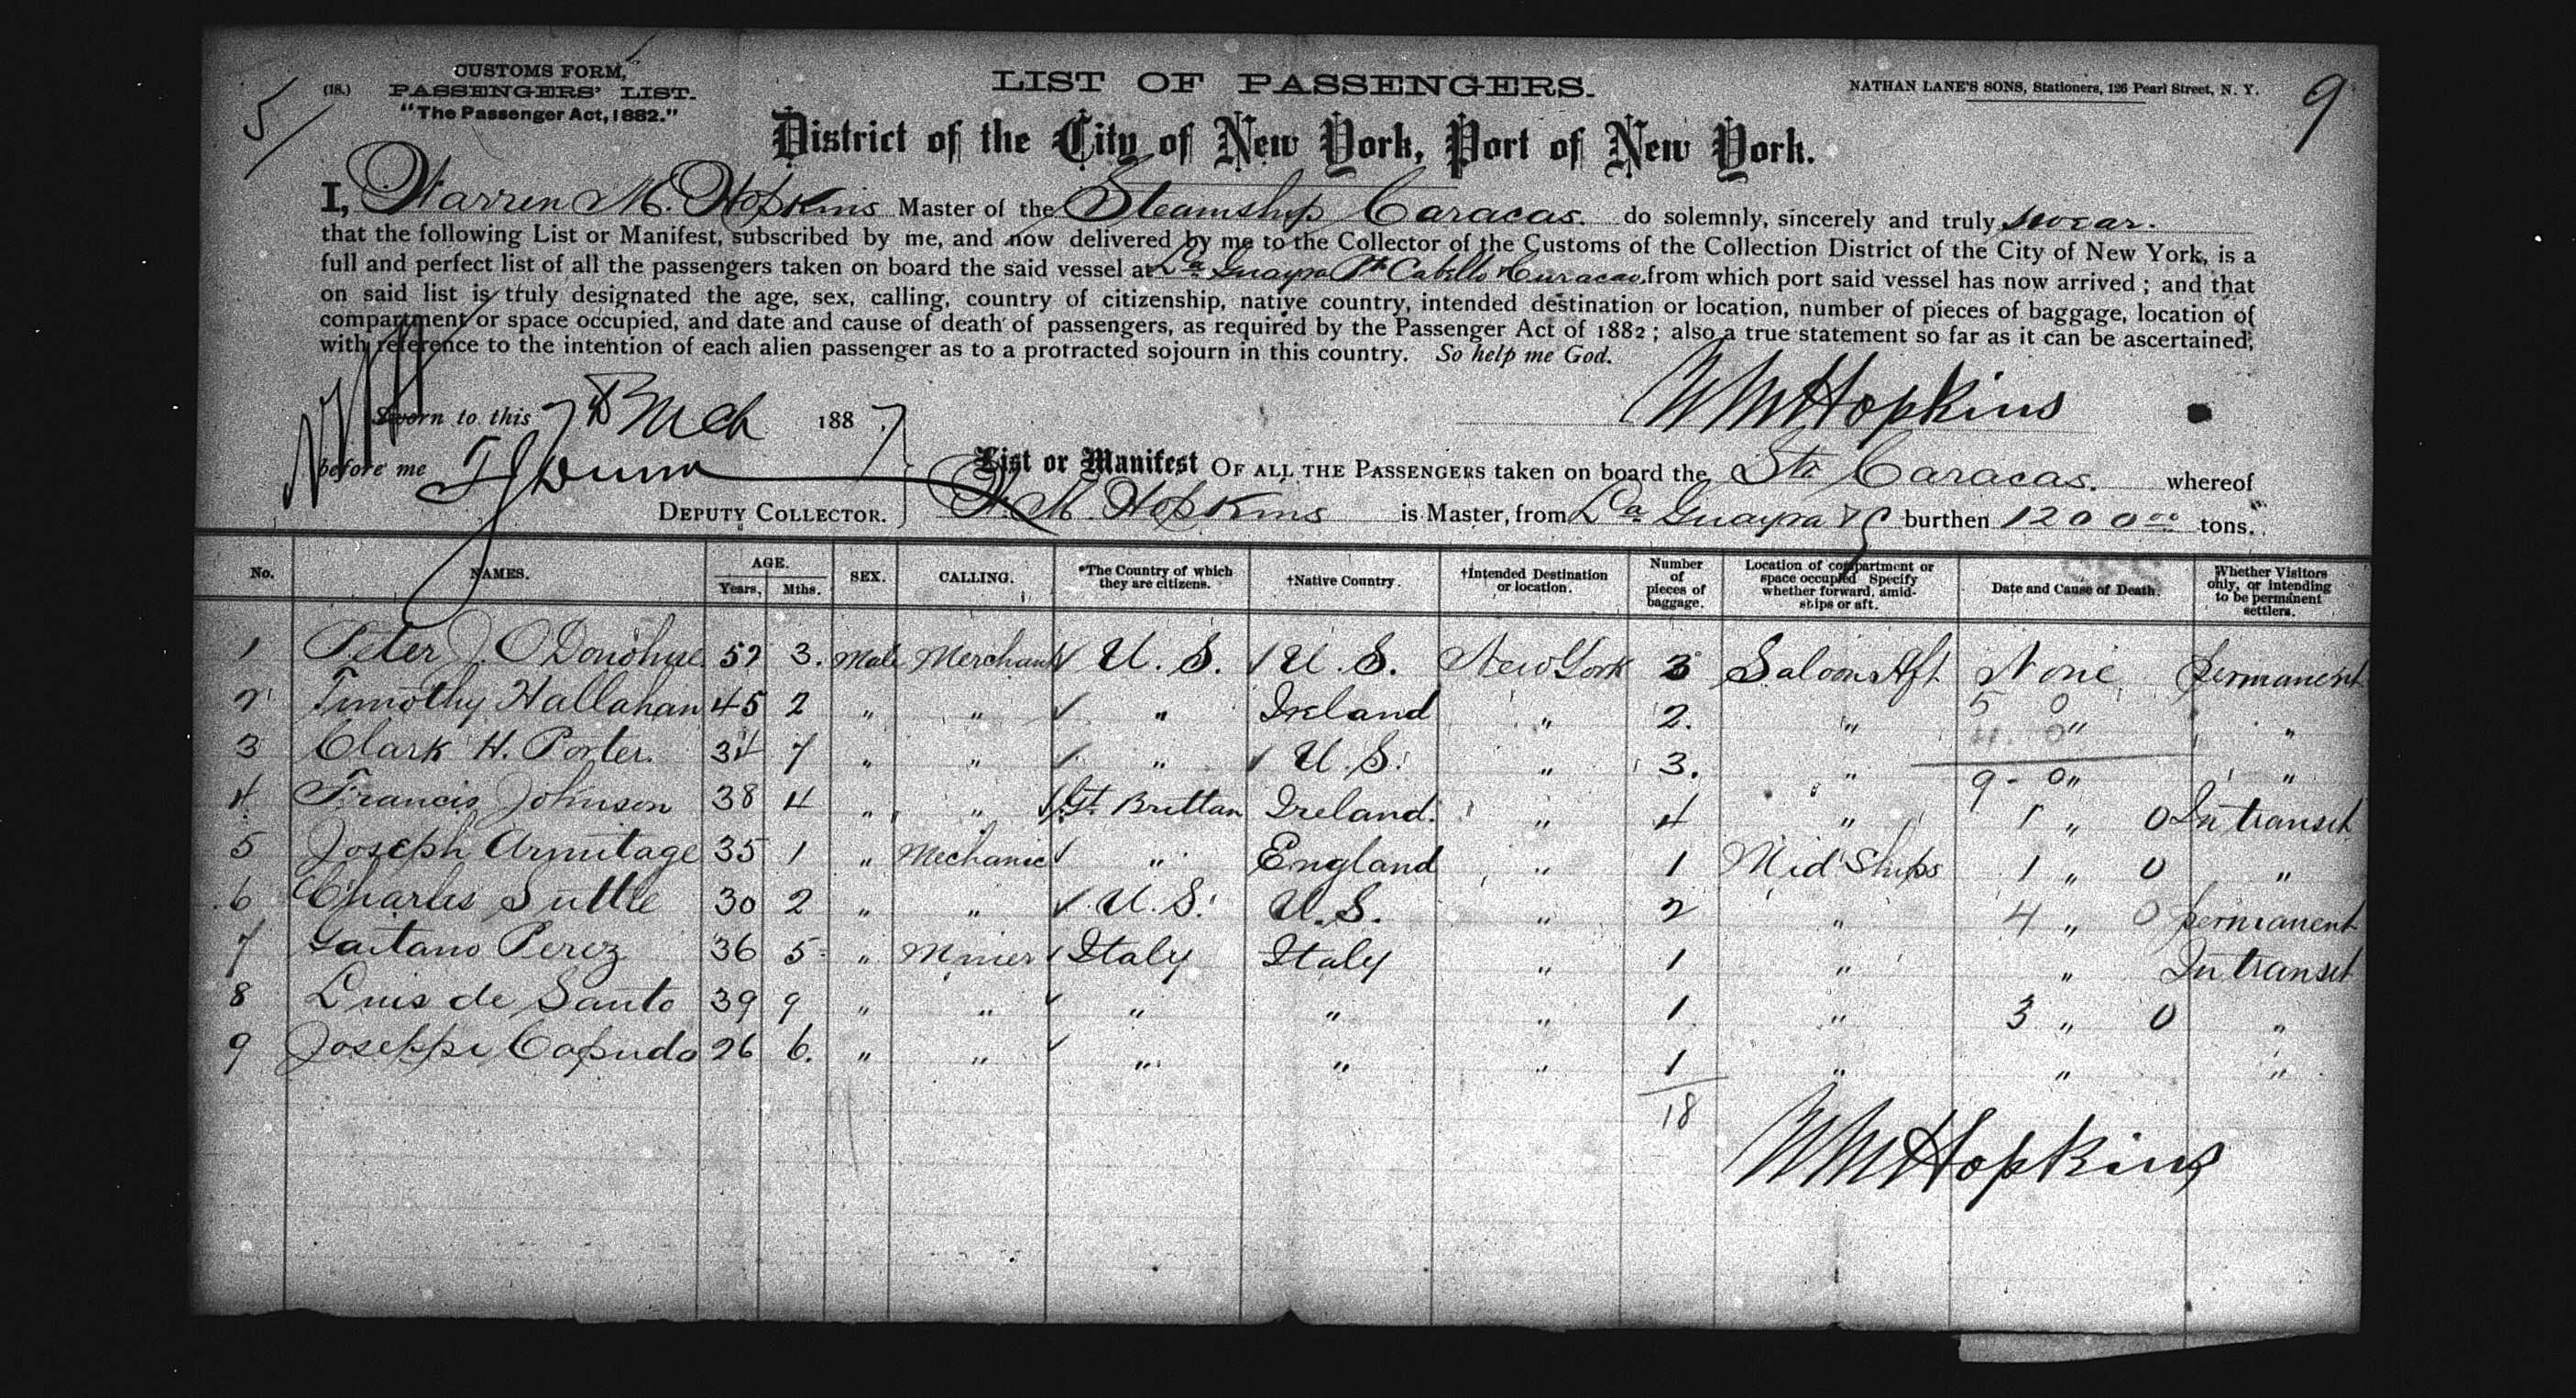 5/
CUSTOMS FORM,
(18.) PASSENGERS' LIST.
"The Passenger Act, 1882."
LIST OF PASSENGERS.
NATHAN LANE'S SONS, Stationers, 126 Pearl Street, N. Y.
9
District of the City of New York, Port of New York.
I, Warren M. Hopkins Master of the Steamship Caracas. do solemnly, sincerely and truly swear.
that the following List or Manifest, subscribed by me, and now delivered by me to the Collector of the Customs of the Collection District of the City of New York, is a
full and perfect list of all the passengers taken on board the said vessel at La Guayra Pto Cabello & Curacao from which port said vessel has now arrived; and that
on said list is truly designated the age, sex, calling, country of citizenship, native country, intended destination or location, number of pieces of baggage, location of
compartment or space occupied, and date and cause of death of passengers, as required by the Passenger Act of 1882; also a true statement so far as it can be ascertained,
with reference to the intention of each alien passenger as to a protracted sojourn in this country. So help me God.
WM Hopkins
Sworn to this 7th Mch 1887
before me
DEPUTY COLLECTOR.
List or Manifest OF ALL THE PASSENGERS taken on board the Str Caracas. whereof
W. M. Hopkins is Master, from La Guayra &c burthen 1200 00 tons.
No. NAMES. AGE. Years, Mths. SEX. CALLING. *The Country of which they are citizens. †Native Country. †Intended Destination or location. Number of pieces of baggage. Location of compartment or space occupied Specify whether forward, amidships or aft. Date and Cause of Death. Whether Visitors only, or intending to be permanent settlers.
1 Peter J. O'Donohue 52 3. Male Merchant U. S. U. S. New York 3 Saloon Aft None permanent
2 Timothy Hallahan 45 2 " " " Ireland " 2. " " "
3 Clark H. Porter. 34 7 " " " U. S. " 3. " " "
4 Francis Johnson 38 4 " " Gt. Brittan Ireland. " 4 " 1 " 0 In transit
5 Joseph Armitage 35 1 " Mechanic " England " 1 Mid Ships 1 " 0 "
6 Charles Suttle 30 2 " " U. S. U. S. " 2 " 4 " 0 permanent
7 Gaitano Perez 36 5 " Miner Italy Italy " 1 " " In transit
8 Luis de Santo 39 9 " " " " " 1 " 3 " 0 "
9 Joseppi Capudo 26 6. " " " " " 1 " " "
18
WM Hopkins